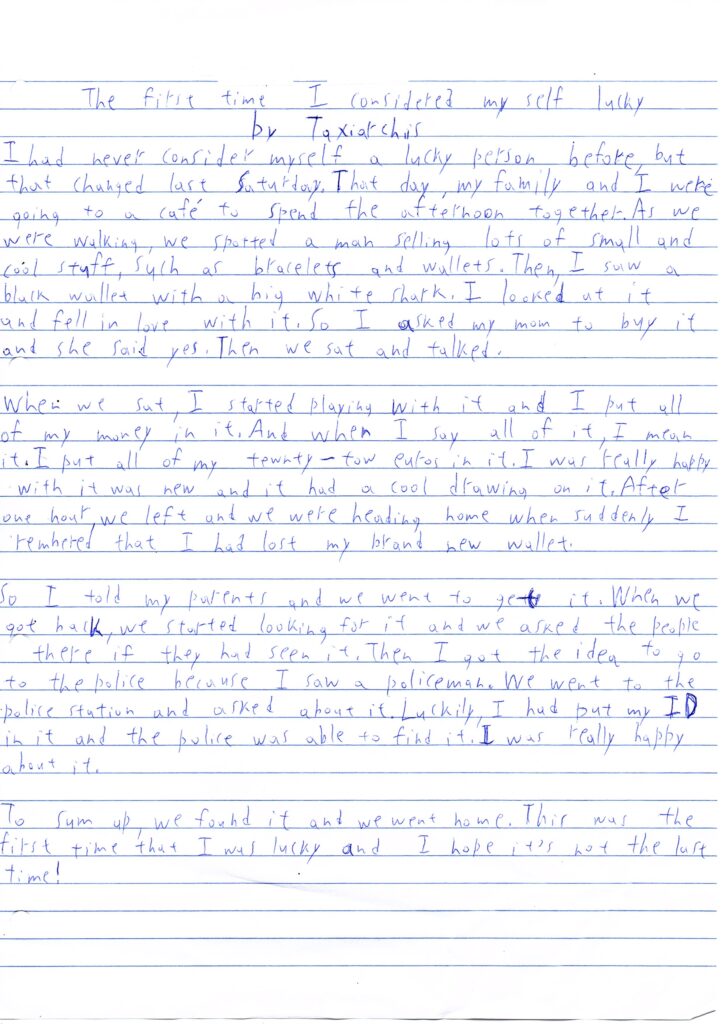 The first time I considered my self lucky
by Taxiarchis
I had never consider myself a lucky person before, but
that changed last Saturday. That day, my family and I were
going to a café to spend the afternoon together. As we
were walking, we spotted a man selling lots of small and
cool stuff, such as bracelets and wallets. Then, I saw a
black wallet with a big white shark. I looked at it
and fell in love with it. So I asked my mom to buy it
and she said yes. Then we sat and talked.
When we sat, I started playing with it and I put all
of my money in it. And when I say all of it, I mean
it. I put all of my tewnty-tow euros in it. I was really happy
with it was new and it had a cool drawing on it. After
one hour, we left and we were heading home when suddenly I
rembered that I had lost my brand new wallet.
So I told my parents and we went to get it. When we
got back, we started looking for it and we asked the people
there if they had seen it. Then I got the idea to go
to the police because I saw a policeman. We went to the
police station and asked about it. Luckily, I had put my ID
in it and the police was able to find it. I was really happy
about it.
To sum up, we found it and we went home. This was the
first time that I was lucky and I hope it's not the last
time!